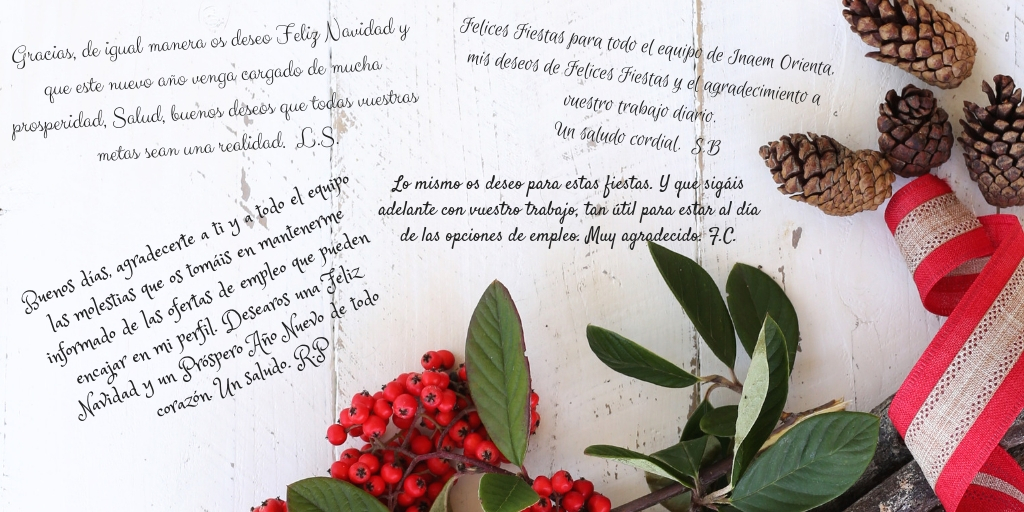 Gracias, de igual manera os deseo Feliz Navidad y
que este nuevo año venga cargado de mucha
prosperidad, Salud, buenos deseos que todas vuestras
metas sean una realidad. L.S.
Felices Fiestas para todo el equipo de Inaem Orienta.
mis deseos de Felices Fiestas y el agradecimiento a
vuestro trabajo diario.
Un saludo cordial. S.B
Lo mismo os deseo para estas fiestas. Y que sigáis
adelante con vuestro trabajo, tan útil para estar al día
de las opciones de empleo. Muy agradecido. F.C.
Buenos días, agradecerte a ti y a todo el equipo
las molestias que os tomáis en mantenerme
informado de las ofertas de empleo que pueden
encajar en mi perfil. Desearos una Feliz
Navidad y un Próspero Año Nuevo de todo
corazón. Un saludo. R.P